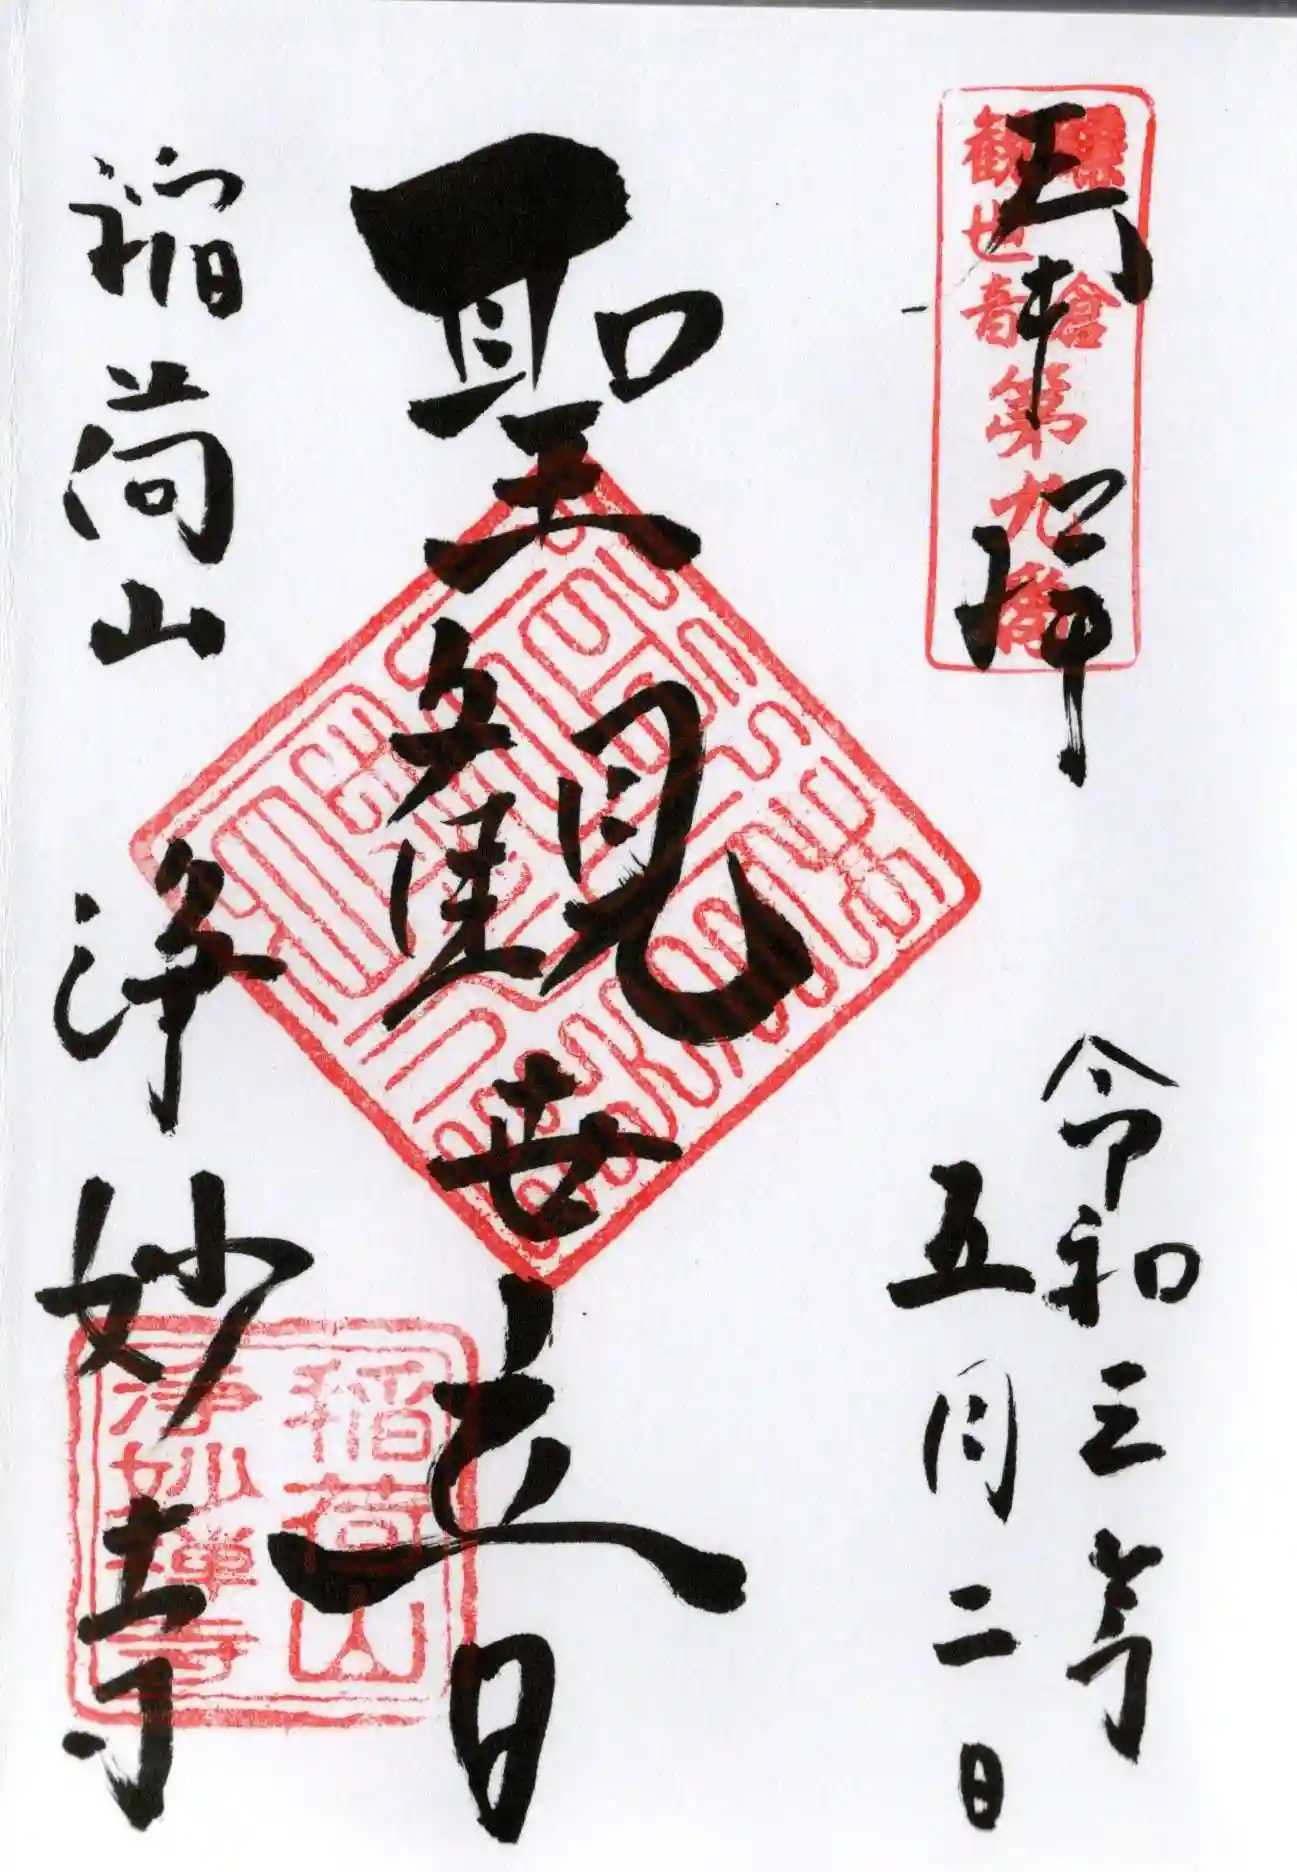 奉拝
鎌倉
観世音
第九番
令和三年
五月二日
聖觀世音
稲荷山
浄妙禅寺
稲荷山 浄妙寺